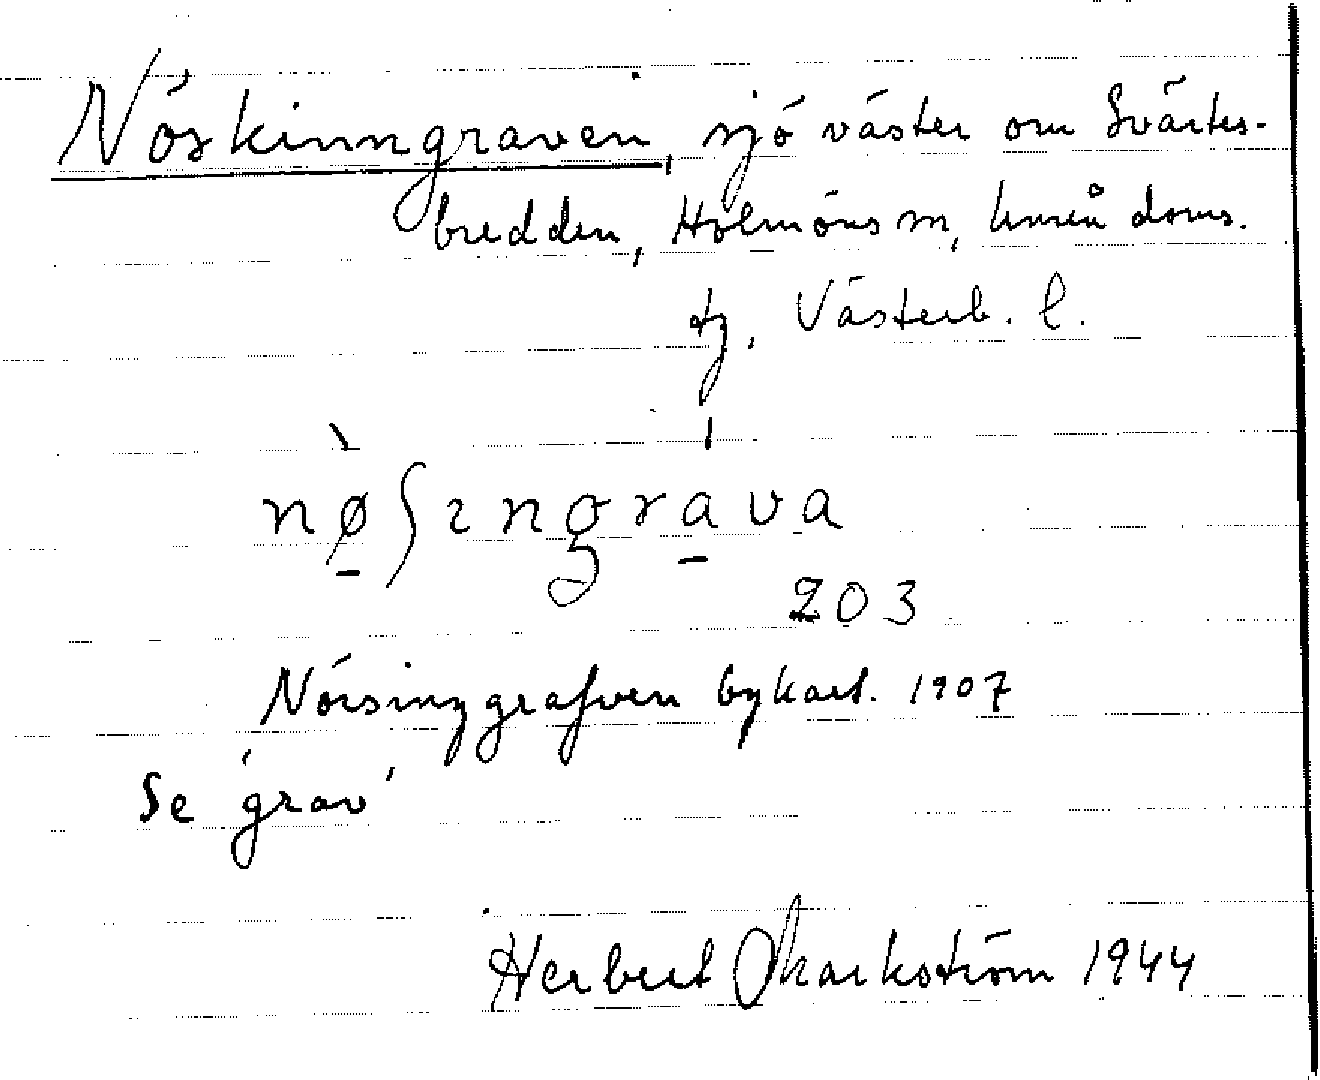 Nöskinngraven, sjö väster om Svärtes-
bredden, Holmöns sn, Umeå doms.
tg, Västerb. l.
nø̀ʃıngráva
203
Nörsinggrafven bykart. 1907
Se 'grav'
Herbert Markström 1944